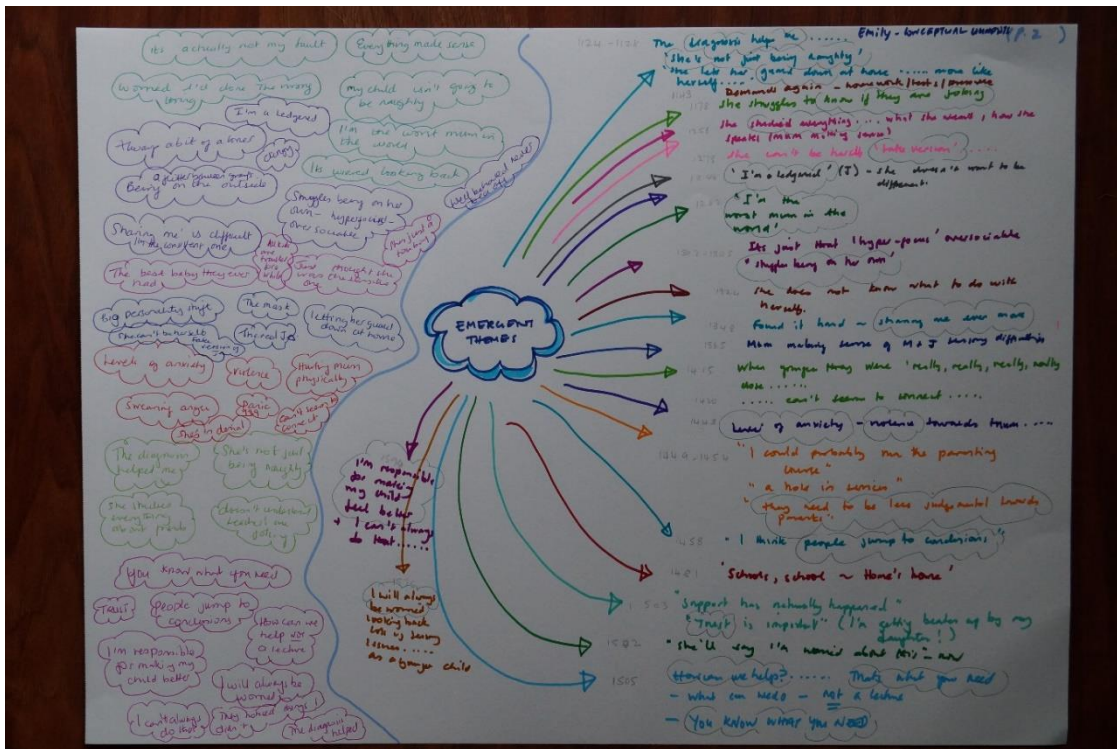 Its actually not my fault
Everything made sense
Worried I'd done the wrong
thing
my child isn't going to
be naughty
I'm a ledgered
I'm the worst mum in
the world
Always a bit of a loner
clingy
Being on the outside
Struggles being on her
own - hyperfocused -
oversociable
'Sharing me' is difficult
I'm the constant one
The best baby they ever
had
Just thought she
was
Big personality shift
The mask
letting her guard
down at home
The real J
fake version
Levels of anxiety
violence
Hurting mum
physically
Swearing anger
Panic
can't seem to
connect
She's in denial
The diagnosis
helped me
She's not just
being naughty
She studies
everything
about
doesn't understand
teachers are
joking
You know what you need
Trust
people jump to
conclusions
How can we
help not
a lecture
I'm responsible
for making my
child better
I will always be
worried
I can't always
do that
They noticed things I
didn't
The diagnosis
helped
EMERGENT
THEMES
I'm responsible
for making
my child
feel better
+ I can't always
do that......
I will always
be worried
looking back
sensory
issues.....
as a younger child
Emily - CONCEPTUAL (P.2)
1124-1128
The diagnosis help me ......
'She's not just being naughty'
she lets her guard down at home ..... more like
herself.....
Demands again - homework/tests/pressure
1178
she struggles to know if they are joking
she studied everything .... what she wears, how she
speaks (mum making sense)
she won't be herself 'fake version' .....
'I'm a ledgered' (J) - she doesn't want to be
different.
"I'm the
worst mum in the
world"
Its just that 'hyper-focus' oversociable
"struggles being on her own"
she does not know what to do with
herself.
1348
Found it hard - sharing me even more
1365
Mum making sense of M + J sensory difficulties
1415
When younger they were 'really, really, really, really
close ......
..... can't seem to connect .....
Level of anxiety - violence towards mum .....
1449, 1454
"I could probably run the parenting
course"
"a hole in services"
"they need to be less judgmental towards
parents"
1458
"I think people jump to conclusions"
1481
'Schools, school ~ Home's home'
1503
"Support has naturally happened"
"Trust is important" (I'm getting beaten up by my
daughter!)
1502
"she'll say I'm worried about this" - now
1505
How can we help? ...... That's what you need
- what can we do - not a lecture
- YOU KNOW WHAT YOU NEED